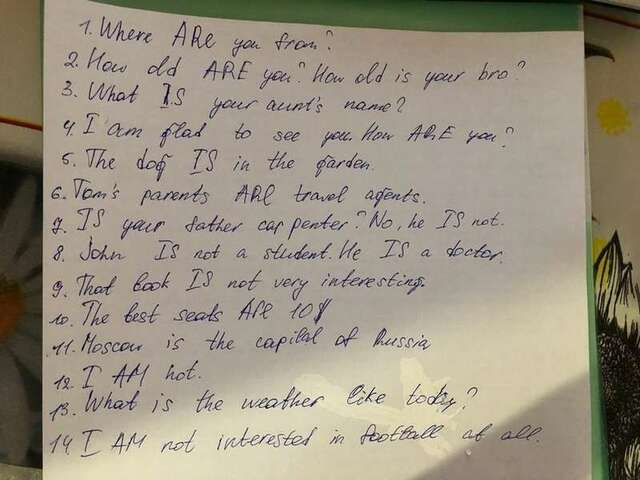 1. Where ARE you from?
2. How old ARE you? How old is your bro?
3. What IS your aunt's name?
4. I am glad to see you. How ARE you?
5. The dog IS in the garden.
6. Tom's parents ARE travel agents.
7. IS your father carpenter? No, he IS not.
8. John IS not a student. He IS a doctor.
9. That book IS not very interesting.
10. The best seats ARE 10$
11. Moscow is the capital of Russia
12. I AM hot.
13. What is the weather like today?
14. I AM not interested in football at all.